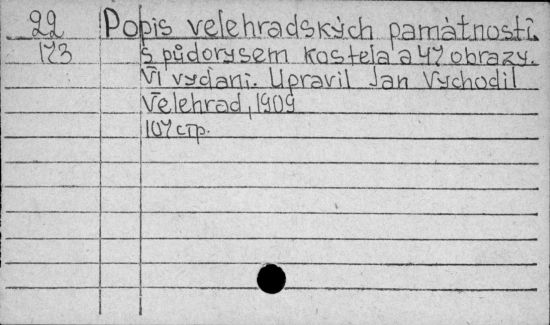 22 Popis velehradských památností.
173 s půdorysem kostela a 47 obrazy.
VI vydaní. Upravil Jan Vychodil
Velehrad, 1909
107 стр.